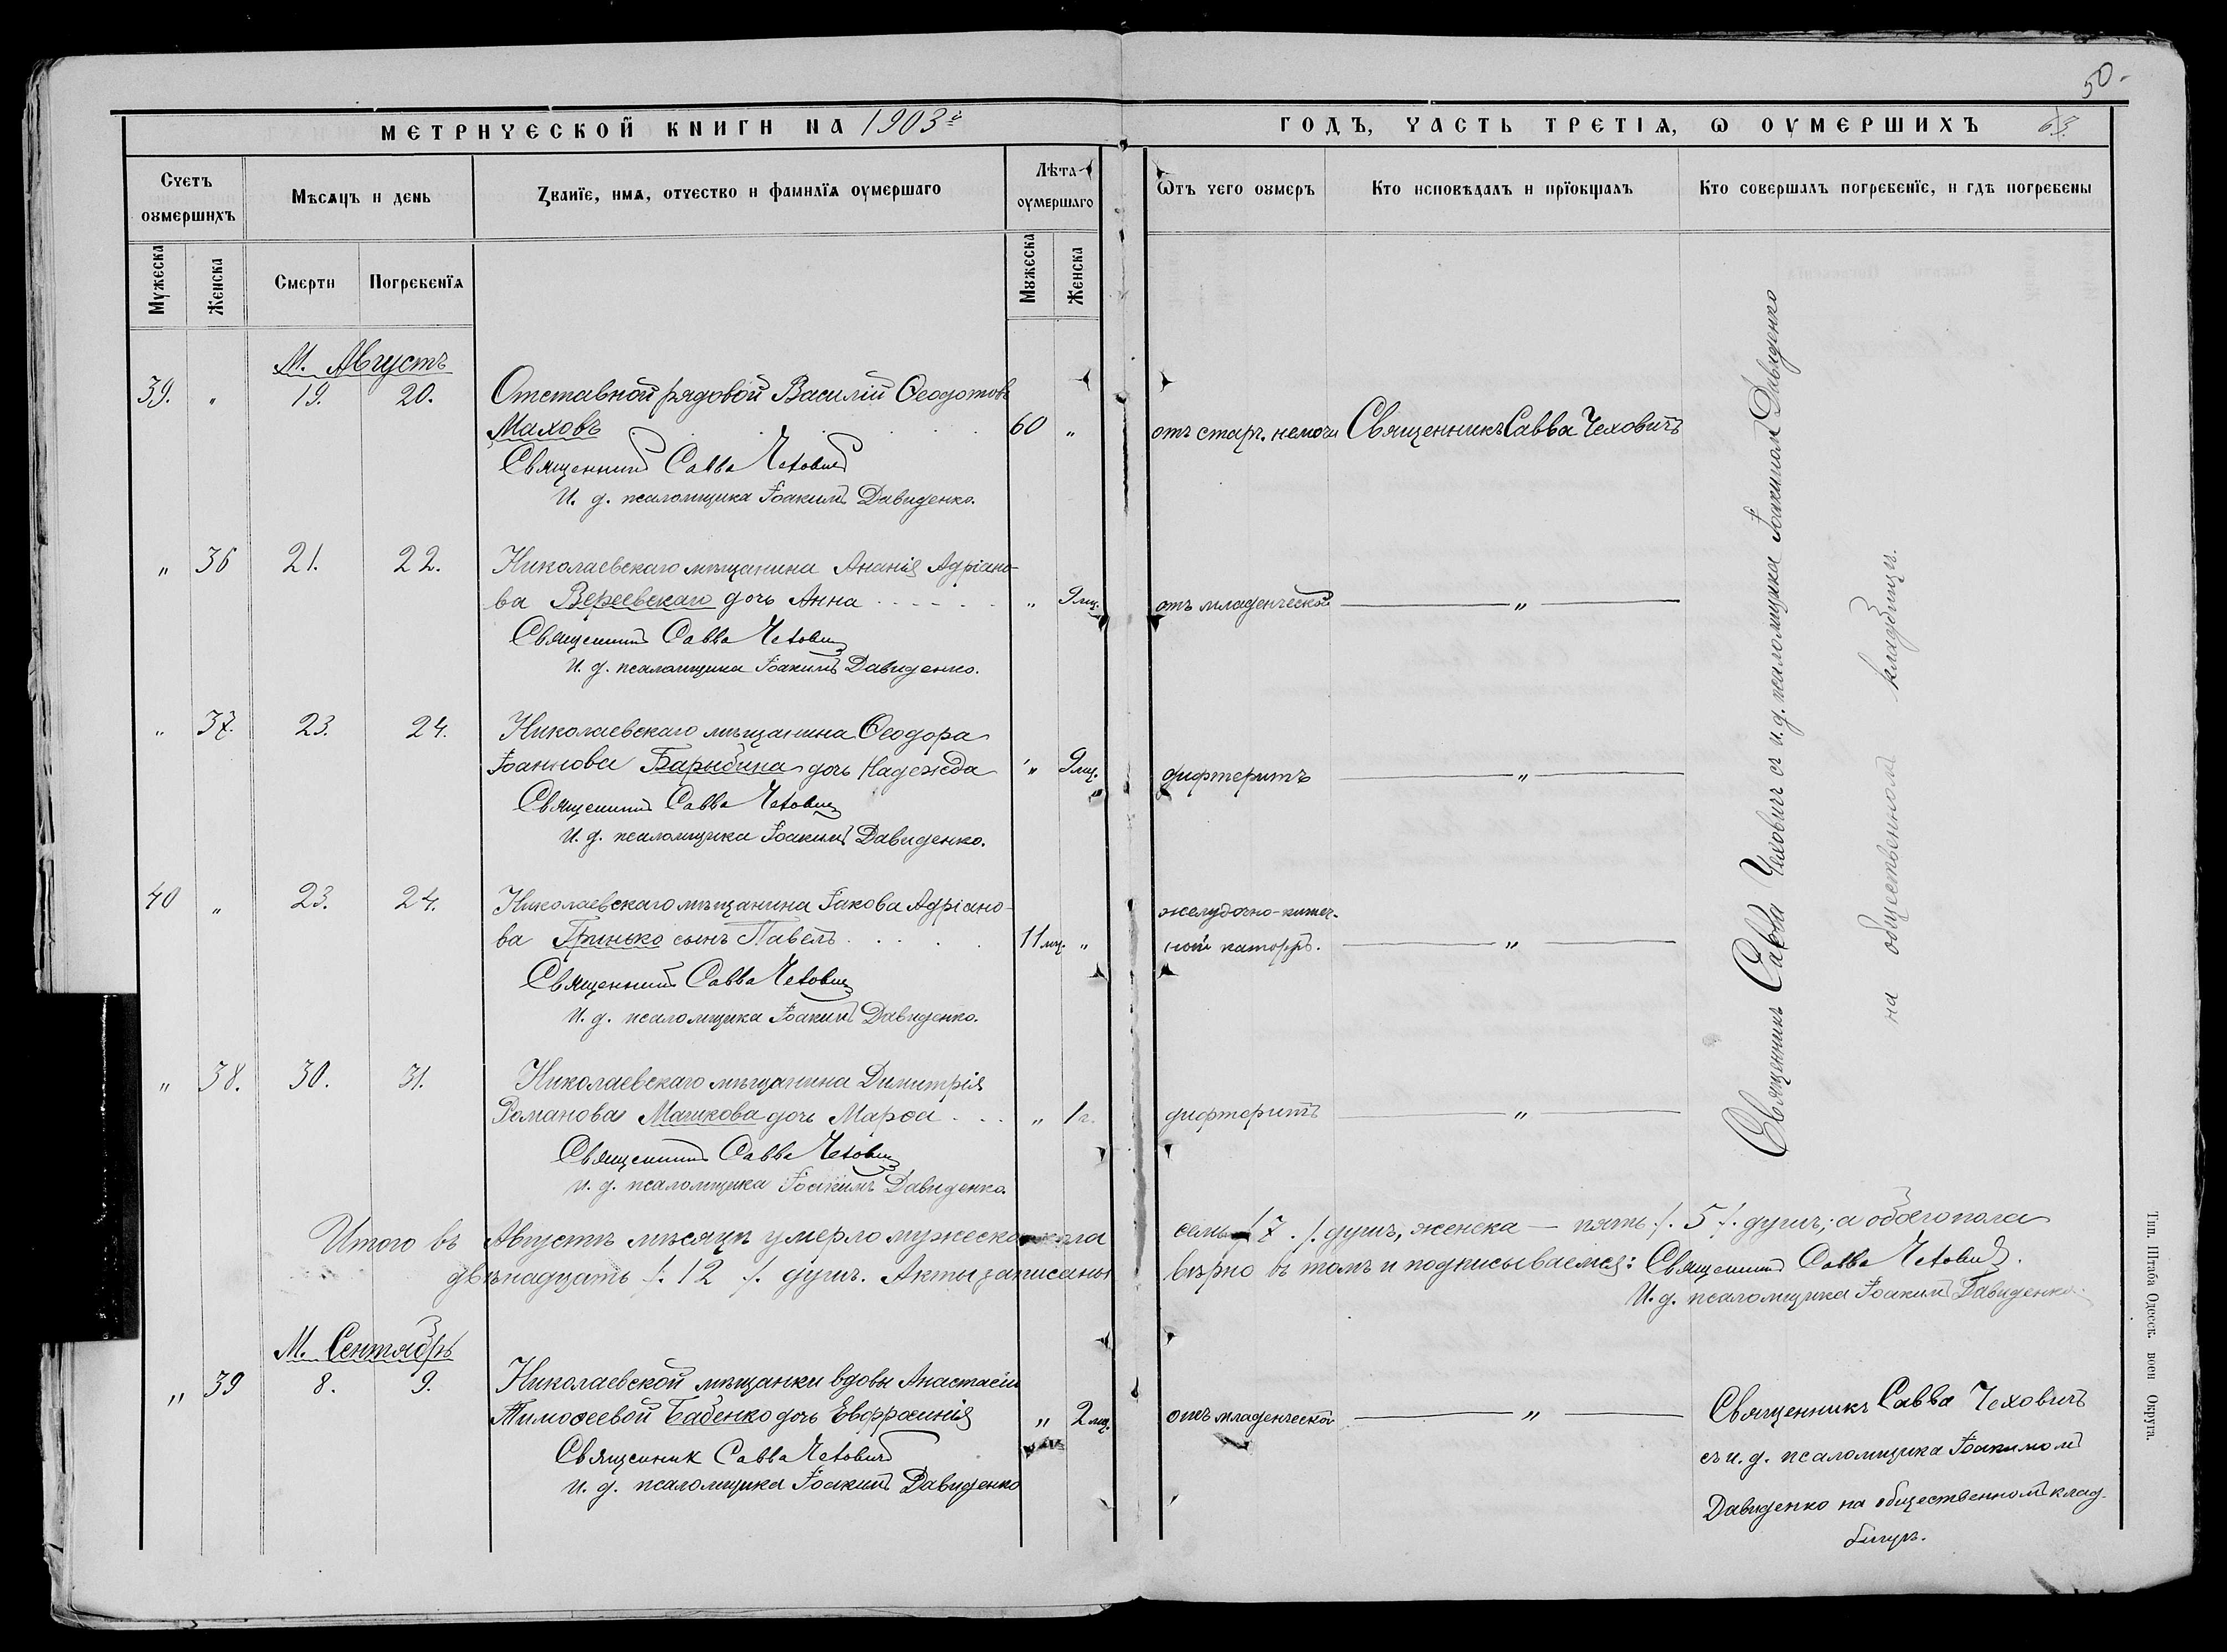 50.
МЕТРИЧЕСКОЙ КНИГИ НА 1903й
ГОДЪ, ЧАСТЬ ТРЕТІѦ, Ѡ ОУМЕРШИХЪ
63.
Счетъ оумершихъ
Мѣсѧцъ и день
Званїе, имѧ, отчество и фамилїѧ оумершаго
Лѣта оумершаго
Ѿтъ чего оумеръ
Кто исповѣдалъ и прїобщалъ
Кто совершалъ погребенїе, и гдѣ погребены
Мужеска
Женска
Смерти
Погребенїѧ
Мужеска
Женска
М. Августъ
39. " 19. 20. Отставной рядовой Василій Ѳеодотовъ
Маховъ 60 " отъ стар. немочи Священникъ Савва Чеховичъ
Священникъ Савва Чеховичъ
И. д. псаломщика Іоакимъ Давиденко.
" 36 21. 22. Николаевскаго мѣщанина Ананія Адріано-
ва Вереевскаго дочь Анна " 9 мц. отъ младенческой — " —
Священникъ Савва Чеховичъ
И. д. псаломщика Іоакимъ Давиденко.
" 37. 23. 24. Николаевскаго мѣщанина Ѳеодора
Іоаннова Барыбина дочь Надежда " 9 мц. дифтеритъ — " —
Священникъ Савва Чеховичъ
И. д. псаломщика Іоакимъ Давиденко.
40 " 23. 24. Николаевскаго мѣщанина Іакова Адріано- желудочно-кишеч-
ва Гринько сынъ Павелъ 11 мц. " ной катарръ. — " —
Священникъ Савва Чеховичъ
И. д. псаломщика Іоакимъ Давиденко.
" 38. 30. 31. Николаевскаго мѣщанина Димитрія
Романова Машкова дочь Марѳа " 1 г. дифтеритъ — " —
Священникъ Савва Чеховичъ
И. д. псаломщика Іоакимъ Давиденко.
Священникъ Савва Чеховичъ съ и. д. псаломщика Іоакимомъ Давиденко
на общественномъ кладбищѣ.
Итого въ Августѣ мѣсяцѣ умерло мужеска пола семь /. 7 ./. душъ, женска — пять /. 5 /. душъ; а обоего пола
двѣнадцать /. 12 /. душъ. Акты записаны вѣрно въ томъ и подписываемся: Священникъ Савва Чеховичъ.
И. д. псаломщика Іоакимъ Давиденко.
М. Сентябрь
" 39 8. 9. Николаевской мѣщанки вдовы Анастасіи
Тимоѳеевой Бабенко дочь Евфросинія " 2 мц. отъ младенческой — " —
Священник Савва Чеховичъ
И. д. псаломщика Іоакимъ Давиденко
Священникъ Савва Чеховичъ
съ и. д. псаломщика Іоакимомъ
Давиденко на общественномъ клад-
бищѣ.
Тип. Штаба Одесск. воен Округа.